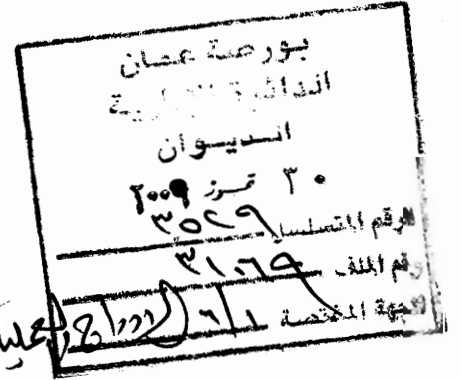 بورصة عمان
الدائرة الإدارية
الديوان
٣٠ تموز ٢٠٠٩
الرقم المتسلسل ٣٥٢٩
رقم الملف ٣١٠٦٩
الجهة المختصة